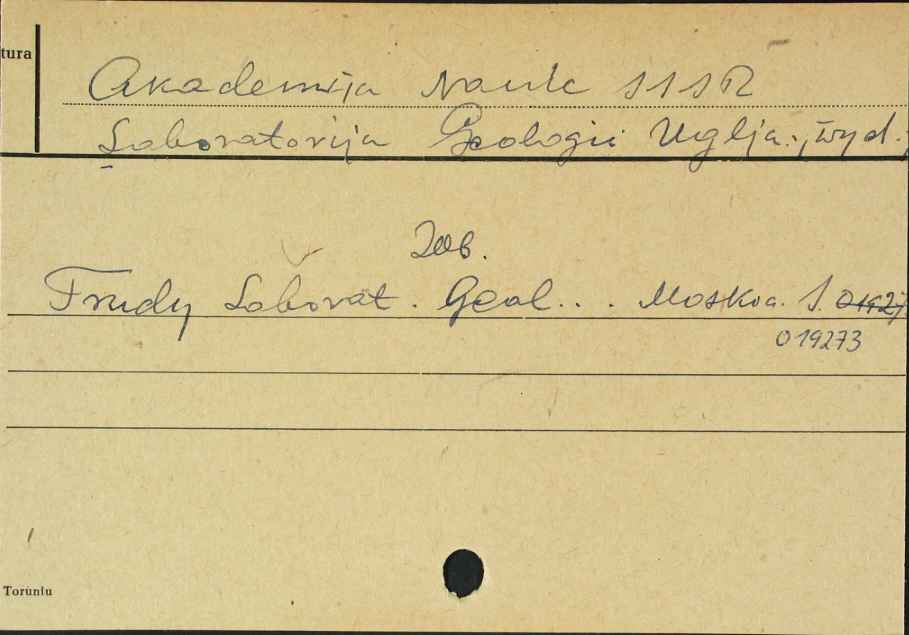 tura
Akademija Nauk SSSR
Laboratorija Geologii Uglja., wyd.
Zob.
Trudy Laborat. Geol... Moskva. S.
019273
Toruniu